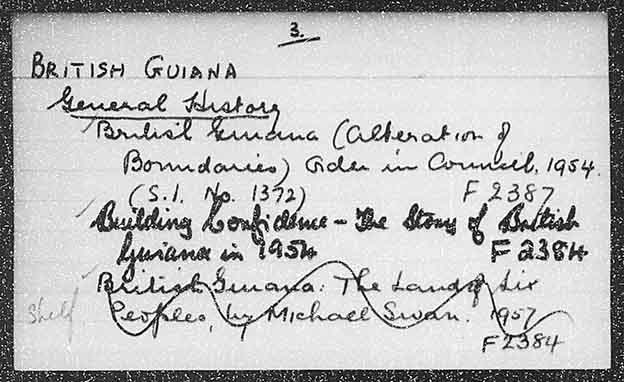 3.
BRITISH GUIANA
General History
British Guiana (Alteration of
Boundaries) Order in Council, 1954.
(S.I. No. 1372) F 2387
Building Confidence - The Story of British
Guiana in 1954 F 2384
British Guiana: The Land of Six
Shelf Peoples, by Michael Swan. 1957
F 2384